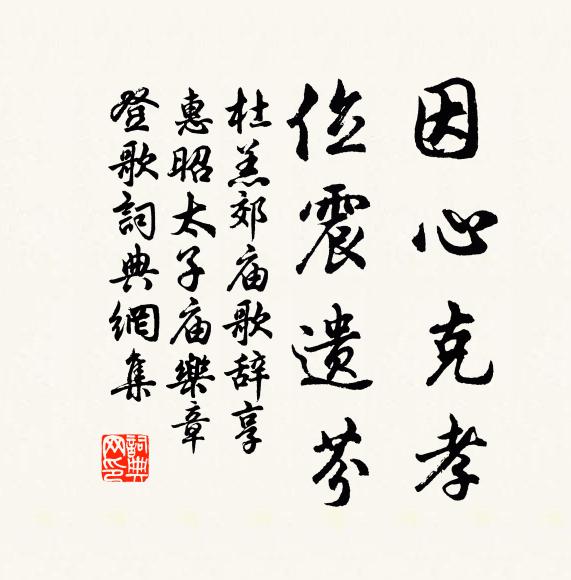 因心克孝
位震遗芬
杜羔郊庙歌辞享
惠昭太子庙樂章
登歌詞典網集
詞典
网印